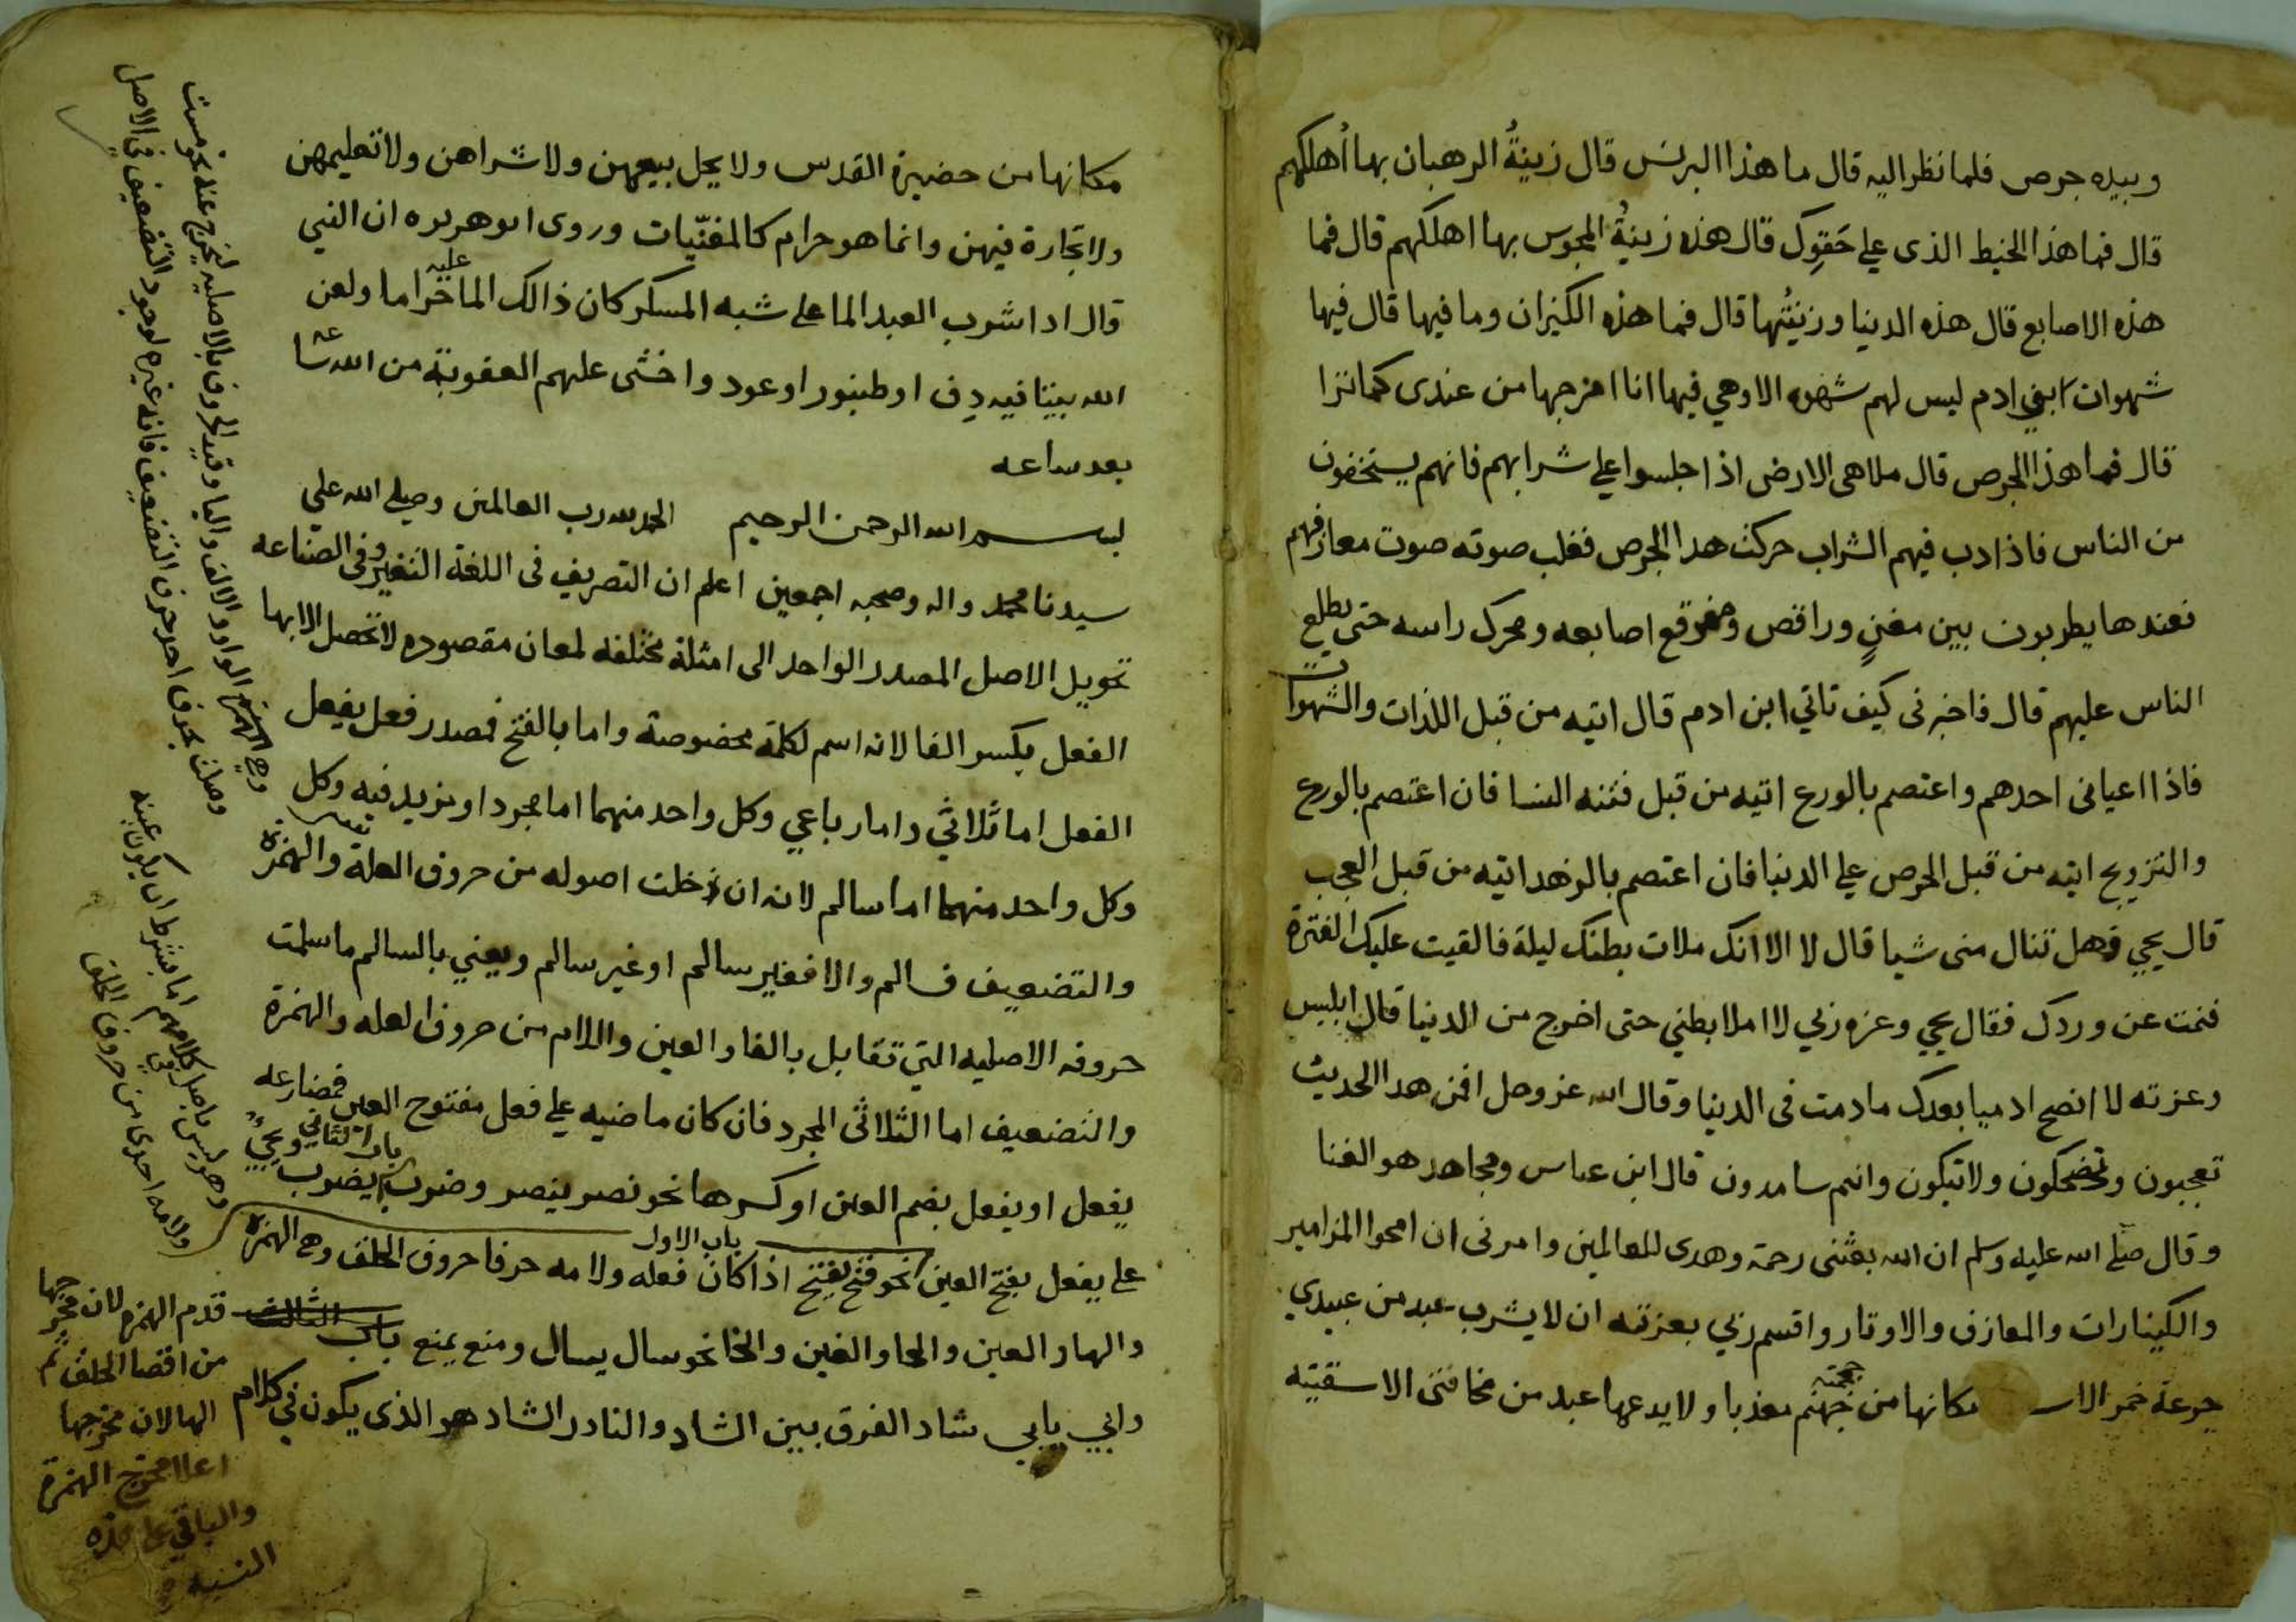 وبيده جرص فلما نظر اليه قال ما هذا البرنس قال زينةُ الرهبان بها اُهلكهم
قال فما هذا الخيط الذى على حَقوِك قال هذه زينةُ المجوس بها اهلكهم قال فما
هذه الاصابع قال هذه الدنيا وزينتُها قال فما هذه الكيزان وما فيها قال فيها
شهوات ابني ادم ليس لهم شهوه الا وهي فيها انا اخرجها من عندى كما ترا
قال فما هذا الجرص قال ملاهى الارض اذا جلسوا على شرابهم فانهم يستخفون
من الناس فاذا دب فيهم الشراب حركت هدا الجرص فغلب صوته صوت معازفهم
فعندها يطربون بين مغنٍ وراقص ومفرقع اصابعه ومحرك راسه حتى يطلع
الناس عليهم قال فاخبرنى كيف تاتي ابن ادم قال اتيه من قبل اللذات والشهوات
فاذا اعيانى احدهم واعتصم بالورع اتيه من قبل فتنه النسا فان اعتصم بالورع
والتزويج اتيه من قبل الحرص على الدنيا فان اعتصم بالزهد اتيه من قبل العجب
قال يحيى فهل تنال منى شيا قال لا الا انك ملات بطنك ليلة فالقيت عليك الفترة
فنمت عن وردك فقال يحيى وعزه ربي لا املا بطني حتى اخرج من الدنيا قال ابليس
وعزته لا انصح ادميا بعدك مادمت فى الدنيا وقال الله عز وجل افمن هدا الحديث
تعجبون وتضحكون ولا تبكون وانتم سامدون قال ابن عباس ومجاهد هو الغنا
وقال صلى الله عليه وسلم ان الله بعثنى رحمة وهدى للعالمين وامرنى ان امحوا المزامير
والكينارات والمعازف والاوتار واقسم ربي بعزته ان لا يشرب عبد من عبيدي
جرعة خمر الا مكانها من جهنم معذبا ولا يدعها عبد من مخافتى الا سقيته
مكانها من حضيرة القدس ولا يحل بيعهن ولا شراهن ولا تعليمهن
ولا تجارة فيهن وانما هو حرام كالمغنّيات وروى ابو هريره ان النبي
قال اذا شرب العبد الما على شبه المسكر كان ذالك الما عليه حراما ولعن
الله بيتا فيه دف او طنبور او عود واخشى عليهم العقوبة من الله
بعد ساعه
بسم الله الرحمن الرحيم الحمد لله رب العالمين وصلى الله على
سيدنا محمد واله وصحبه اجمعين اعلم ان التصريف فى اللغة التغير وفى الصناعه
تحويل الاصل المصدر الواحد الى امثلة مختلفه لمعان مقصوده لا تحصل الا بها
الفعل بكسر الفا لانه اسم لكلمة مخصوصة واما بالفتح فمصدر فعل يفعل
الفعل اما ثلاثي واما رباعي وكل واحد منهما اما مجرد او مزيد فيه وكل
وكل واحد منهما اما سالم لانه ان خلت اصوله من حروف العلة والهمزة
والتضعيف فسالم والا فغير سالم او غير سالم ويعني بالسالم ما سلمت
حروفه الاصليه التي تقابل بالفا والعين واللام من حروف العله والهمزة
والتضعيف اما الثلاثى المجرد فان كان ماضيه على فعل مفتوح العين فمضارعه
يفعل او يفعل بضم العين او كسرها نحو نصر ينصر وضرب يضرب باب الثاني ويجي
على يفعل بفتح العين نحو فتح يفتح اذا كان فعله ولامه حرفا حروف الحلق وهي الهمزة
باب الاول
والها والعين والحا والغين والخا نحو سال يسال ومنع يمنع باب الثالث
وابي يابي شاد الفرق بين الشاد والنادر الشاد هو الذى يكون في كلام
قدم الهمزه لان مخرجها
من اقصا الحلق ثم
الها لان مخرجها
اعلا مخرج الهمزة
والباقي على هذه
وهو ليس باصل كلامهم اما بشرط ان يكون عينه
ولامه احدى من حروف الحلق